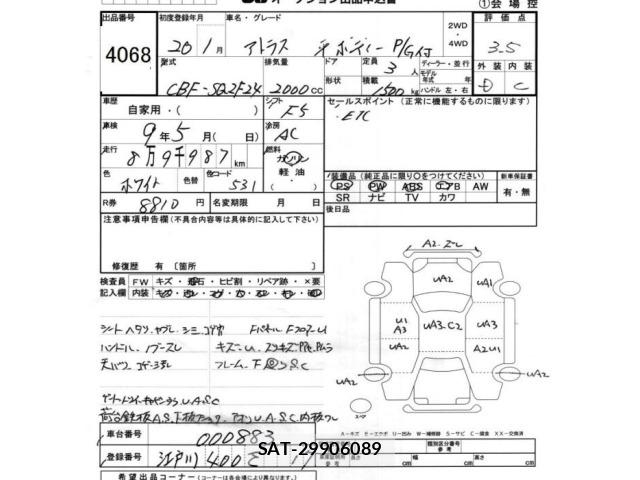 オークション出品申込書 ①会場控
出品番号 4068
初度登録年月 20 1月
車名・グレード アトラス 平ボディー P/G付
2WD・4WD
評価点 3.5
型式 CBF-SQ2F24
排気量 2000cc
ドア 形状
定員 3人
積載 1500kg
ディーラー・並行
モデル年式 年式
ハンドル 左・右
外装 D 内装 C
車歴 自家用・( )
シフト F5
セールスポイント(正常に機能するものに限ります)
・ETC
車検 9年5月( 日)
冷房 AC
走行 8万9千987km
燃料 ガソリン 軽油
色 ホワイト 色替 色コード 531
装備品(純正品に限り〇をつけてください) 新車保証書
PS PW ABS エアB AW 有・無
SR ナビ TV カワ
R券 8810円 名変期限 月 日
後日品
注意事項申告欄(不具合内容等は具体的に記入して下さい)
修復歴 有〔箇所 〕
検査員記入欄 FW キズ・飛石・ヒビ割・リペア跡・×要
内装
A2.スレ
UA2 UA1
U1 A3 UA3.C2 UA3
UA2 A2U1
UA2 UA2
シート ヘタリ.ヤブレ.シミ.コゲ穴 FパネルFフロアーU
ハンドル.ノブースレ キズ・U.
天バリ コゲ・ヨゴレ フレーム.F S.C
U.A.S.C
荷台鉄板A.S.下板 U.A.S.C 内板ワレ
A－キズ E－エクボ U－凹み W－補修跡 S－サビ C－腐食 XX－交換済
車台番号 000883
登録番号 江戸川 400 そ
SAT-29906089
幅 cm 高さ cm
類別区分番号 参考
希望出品コーナー(コーナーは各会場